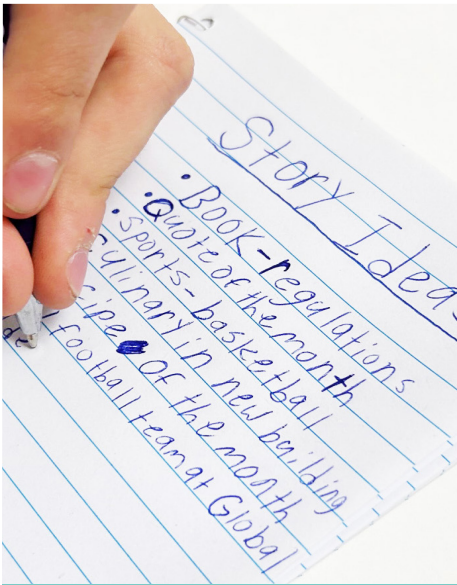 Story Idea
• BOOK-regulations
• Quote of the month
• Sports- basketball
ulinary in new building
cipe of the month
football team at Global